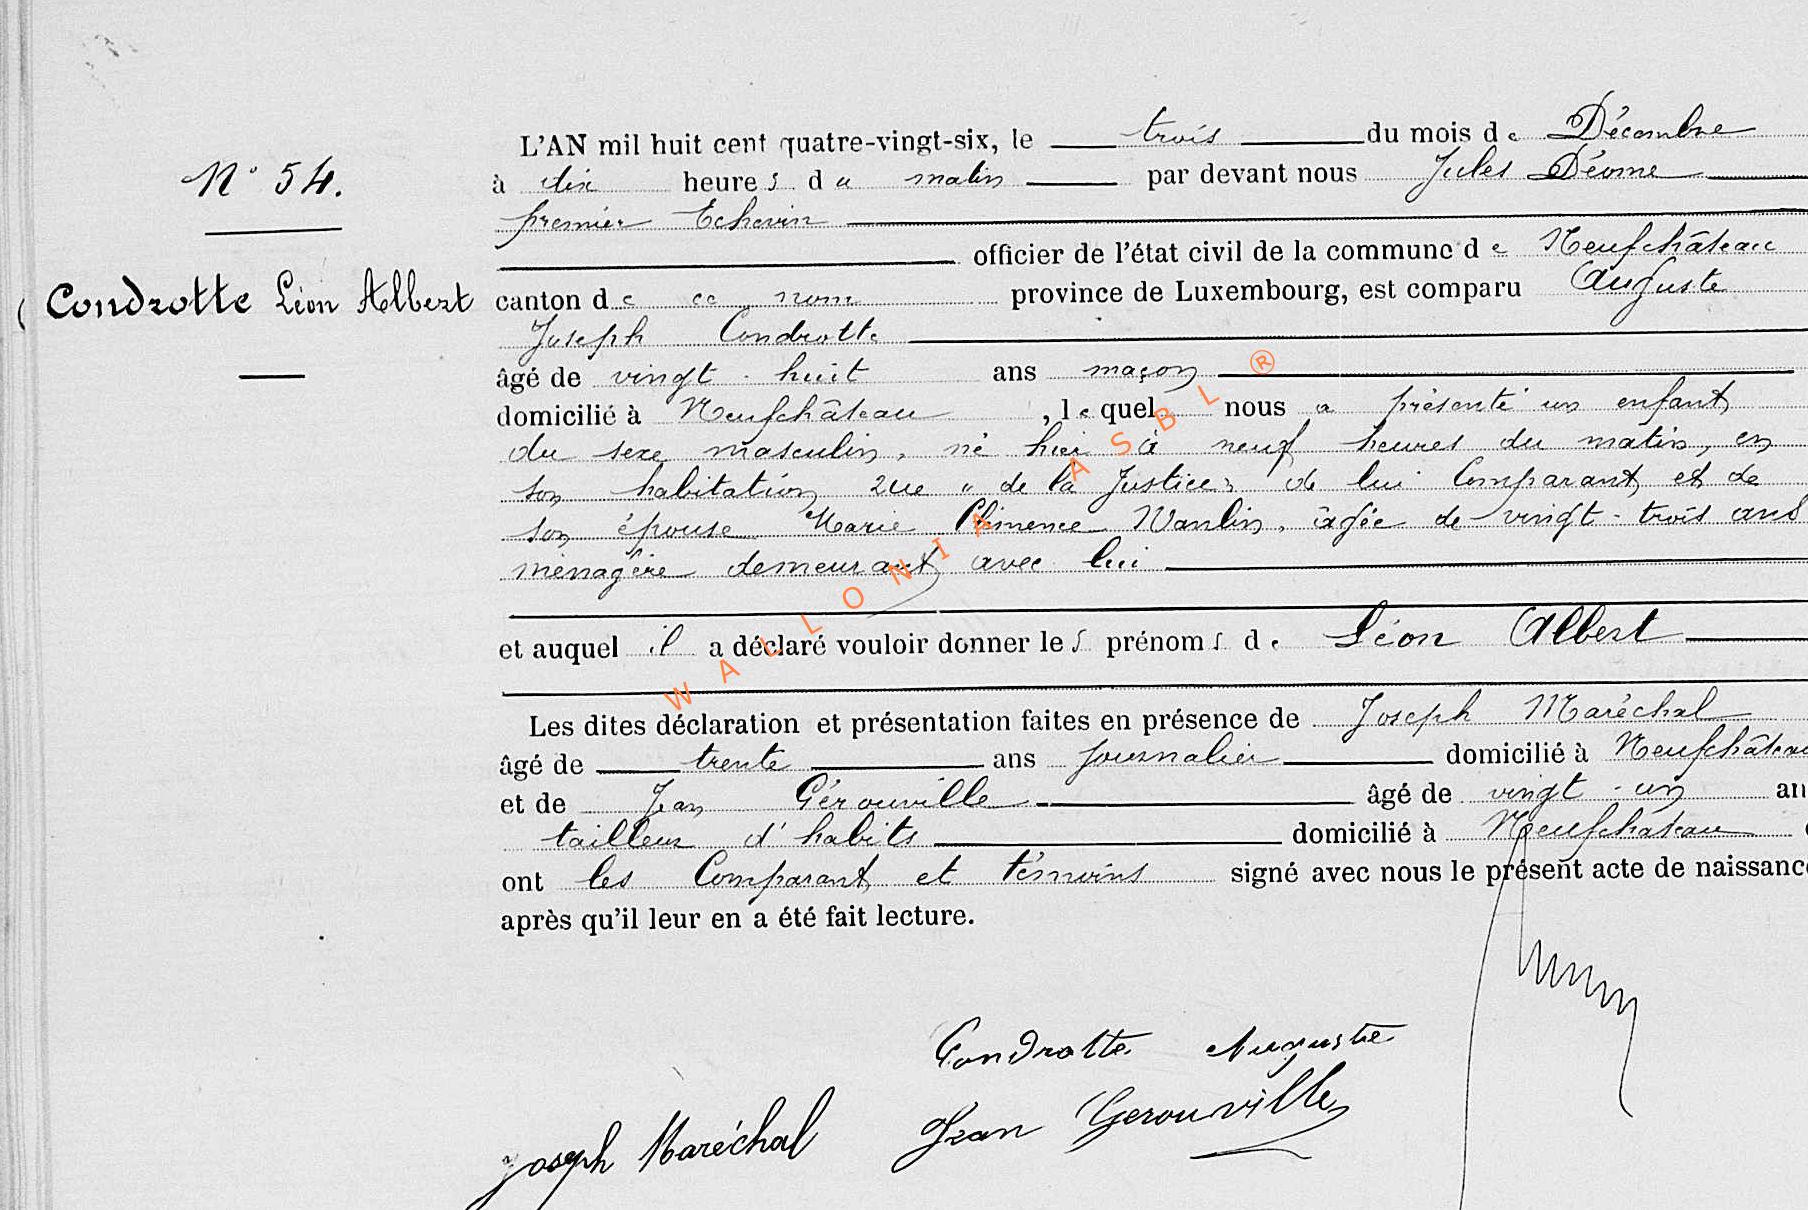 N° 54.
Condrotte Léon Albert
L'AN mil huit cent quatre-vingt-six, le trois du mois de Décembre
à dix heures du matin par devant nous Jules Déome
premier Echevin
officier de l'état civil de la commune de Neufchâteau
canton de ce nom province de Luxembourg, est comparu Auguste
Joseph Condrotte
âgé de vingt-huit ans maçon
domicilié à Neufchâteau, lequel nous a présenté un enfant
du sexe masculin, né hier à neuf heures du matin, en
son habitation, rue " de la Justice", de lui Comparant et de
son épouse Marie Climence Wanlin, âgée de vingt-trois ans
ménagère demeurant avec lui
et auquel il a déclaré vouloir donner les prénoms de Léon Albert
Les dites déclaration et présentation faites en présence de Joseph Maréchal
âgé de trente ans journalier domicilié à Neufchâteau
et de Jean Gérouville âgé de vingt-un an
tailleur d'habits domicilié à Neufchâteau
ont les Comparant et témoins signé avec nous le présent acte de naissance
après qu'il leur en a été fait lecture.
Condrotte Auguste
Joseph Maréchal Jean Gerouville
WALLONIA ASBL ®